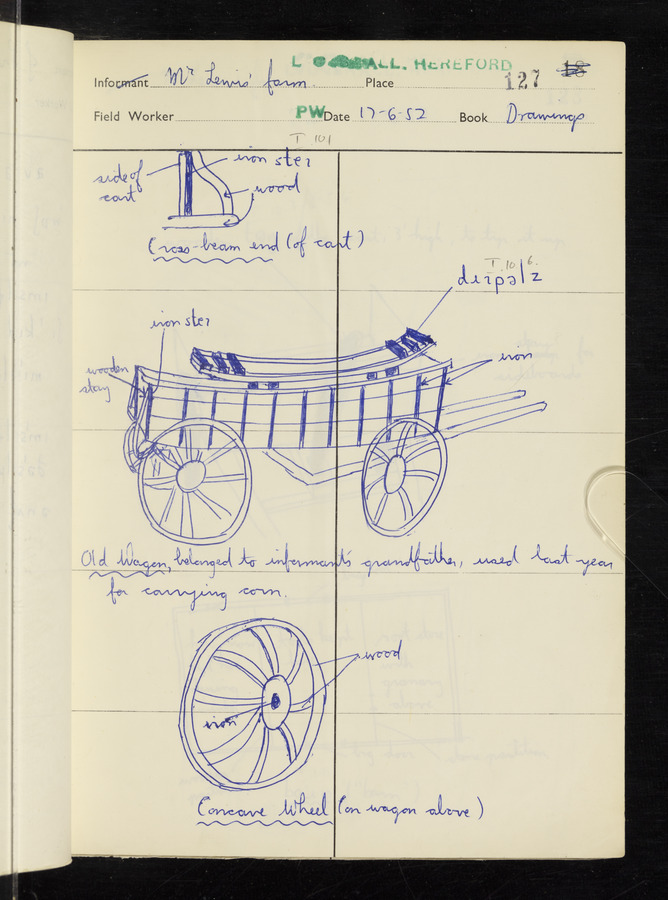 HEREFORD
Informant Mr Lewis' farm. Place 127
Field Worker PW Date 17-6-52 Book Drawings
side of cart
iron ster
wood
Cross-beam end (of cart)
iron ster
wooden stay
iron
Old Wagon, belonged to informant's grandfather, used last year
for carrying corn.
wood
iron
Concave Wheel (on wagon above)